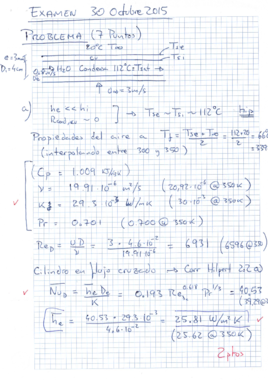 EXAMEN 30 Octubre 2015
PROBLEMA (7 Puntos)
20°C T∞
Tse
e=3mm
Tsi
H2O Condensa 112°C=Tsat
u∞=3m/s
a) he << hi
Rcond,ac ~ 0
→ Tse ~ Tsi ~ 112°C
Propiedades del aire a Tf = Tse+T∞ / 2 = 112+20 / 2 = 66
(interpolando entre 300 y 350)
Cp = 1.009 KJ/kgK
ν = 19.91 10^-6 m²/s (20,92·10^-6 @350K)
K = 29.3 10^-3 W/mK (30·10^-3 @350K)
Pr = 0.701 (0.700 @350K)
ReD = UD/ν = 3·4.6·10^-2 / 19.91·10^-6 = 6931 (6596 @350)
Cilindro en flujo cruzado → Corr Hilpert
NuD = he De / K = 0.193 ReD^0.618 Pr^1/3 = 40.53
he = 40.53·29.3 10^-3 / 4.6·10^-2 = 25.81 W/m²K
(25.62 @350K)
2 ptos